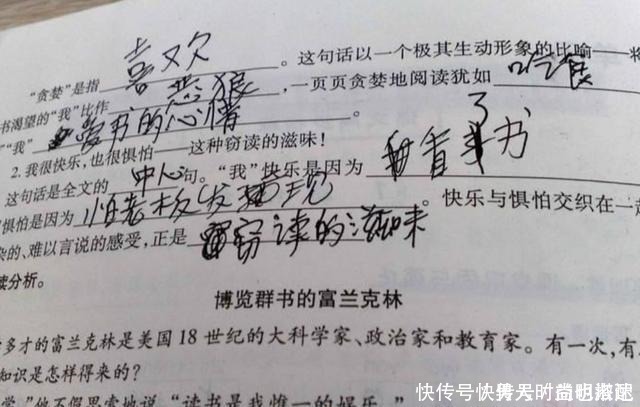 “贪婪”是指 喜欢 。这句话以一个极其生动形象的比喻——将
书渴望的“我”比作 恶狼 ,一页页贪婪地阅读犹如 吃食
了“我” 爱书的心情 。
2. 我很快乐,也很惧怕——这种窃读的滋味!
这句话是全文的 中心 句。“我”快乐是因为 看了书
惧怕是因为 怕老板发现 。快乐与惧怕交织在一起
杂的、难以言说的感受,正是 窃读的滋味
读分析。
博览群书的富兰克林
多才的富兰克林是美国18世纪的大科学家、政治家和教育家。有一次,有
知识是怎样得来的?
学”他不假思索地说“读书是我惟一的娱乐。”
快传号